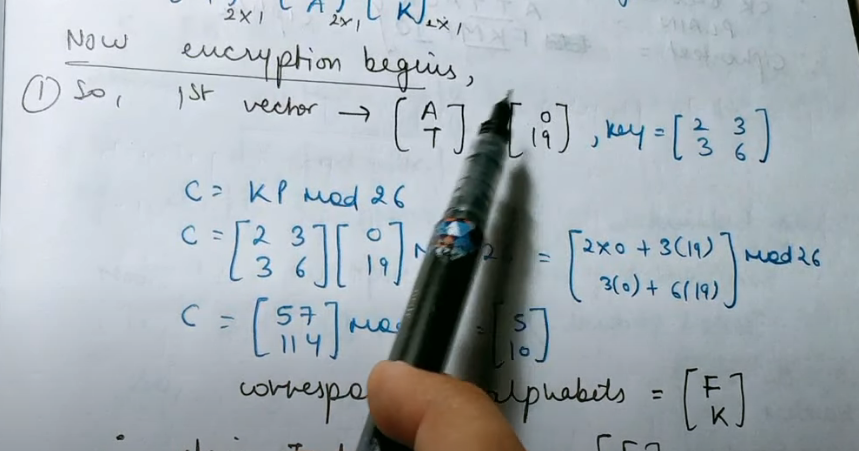 2x1 [ A ] 2x1 [ K ] 2x1
Now encryption begins,
① So, 1st vector → [A T] [0 19], key = [2 3 3 6]
C = KP mod 26
C = [2 3 3 6] [0 19] = [2x0 + 3(19) 3(0) + 6(19)] mod 26
C = [57 114] = [5 10]
alphabets = [F K]